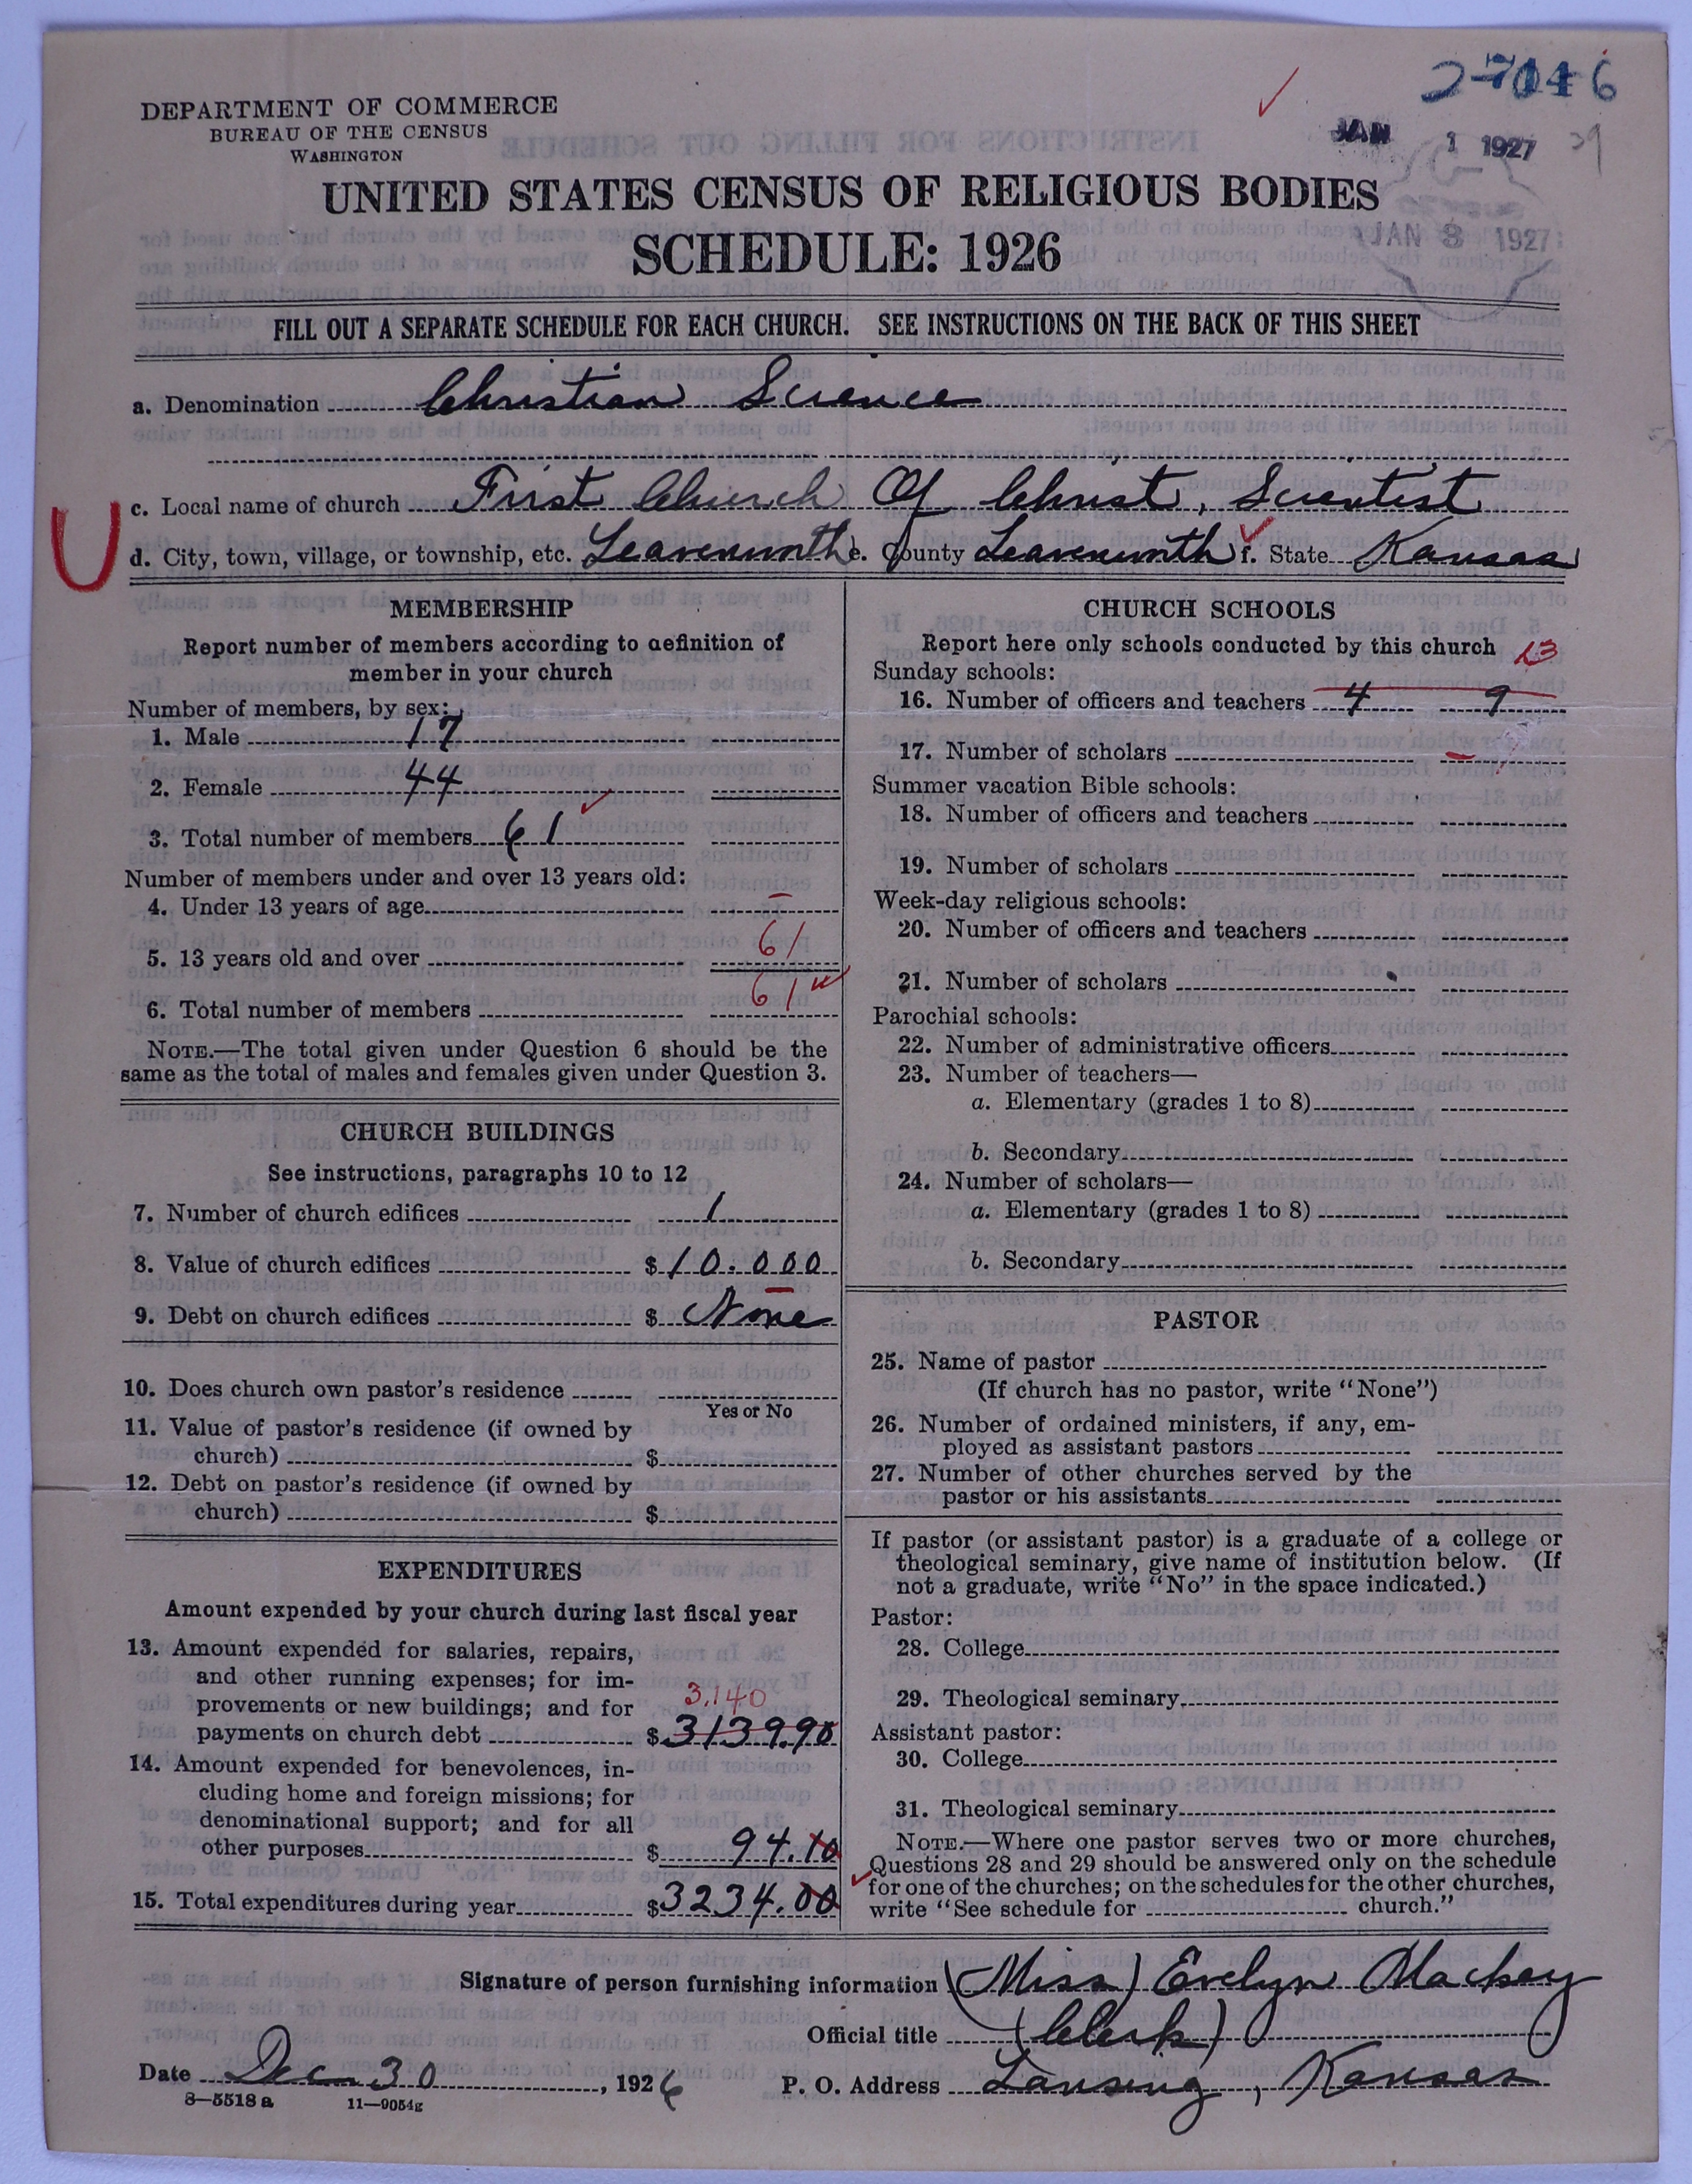 27046
DEPARTMENT OF COMMERCE
BUREAU OF THE CENSUS
WASHINGTON
JAN 1 1927
UNITED STATES CENSUS OF RELIGIOUS BODIES
SCHEDULE: 1926
JAN 3 1927
FILL OUT A SEPARATE SCHEDULE FOR EACH CHURCH. SEE INSTRUCTIONS ON THE BACK OF THIS SHEET
a. Denomination Christian Science
c. Local name of church First Church Of Christ, Scientist
U
d. City, town, village, or township, etc. Leavenworth e. County Leavenworth f. State Kansas
MEMBERSHIP
Report number of members according to definition of
member in your church
Number of members, by sex:
1. Male 17
2. Female 44
3. Total number of members 61
Number of members under and over 13 years old:
4. Under 13 years of age –
5. 13 years old and over 61
6. Total number of members 61
NOTE.—The total given under Question 6 should be the
same as the total of males and females given under Question 3.
CHURCH BUILDINGS
See instructions, paragraphs 10 to 12
7. Number of church edifices 1
8. Value of church edifices $10.000
9. Debt on church edifices $ None
10. Does church own pastor's residence
Yes or No
11. Value of pastor's residence (if owned by
church) $
12. Debt on pastor's residence (if owned by
church) $
EXPENDITURES
Amount expended by your church during last fiscal year
13. Amount expended for salaries, repairs,
and other running expenses; for im-
provements or new buildings; and for 3,140
payments on church debt $3139.90
14. Amount expended for benevolences, in-
cluding home and foreign missions; for
denominational support; and for all
other purposes $ 94.10
15. Total expenditures during year $3234.00
CHURCH SCHOOLS
Report here only schools conducted by this church 13
Sunday schools:
16. Number of officers and teachers 4 9
17. Number of scholars –
Summer vacation Bible schools:
18. Number of officers and teachers
19. Number of scholars
Week-day religious schools:
20. Number of officers and teachers
21. Number of scholars
Parochial schools:
22. Number of administrative officers
23. Number of teachers—
a. Elementary (grades 1 to 8)
b. Secondary
24. Number of scholars—
a. Elementary (grades 1 to 8)
b. Secondary
PASTOR
25. Name of pastor
(If church has no pastor, write "None")
26. Number of ordained ministers, if any, em-
ployed as assistant pastors
27. Number of other churches served by the
pastor or his assistants
If pastor (or assistant pastor) is a graduate of a college or
theological seminary, give name of institution below. (If
not a graduate, write "No" in the space indicated.)
Pastor:
28. College
29. Theological seminary
Assistant pastor:
30. College
31. Theological seminary
NOTE.—Where one pastor serves two or more churches,
Questions 28 and 29 should be answered only on the schedule
for one of the churches; on the schedules for the other churches,
write "See schedule for church."
Signature of person furnishing information (Miss) Evelyn Mackey
Official title (Clerk)
Date Dec 30, 1926 P. O. Address Lansing, Kansas
8—5518 a 11—9054g